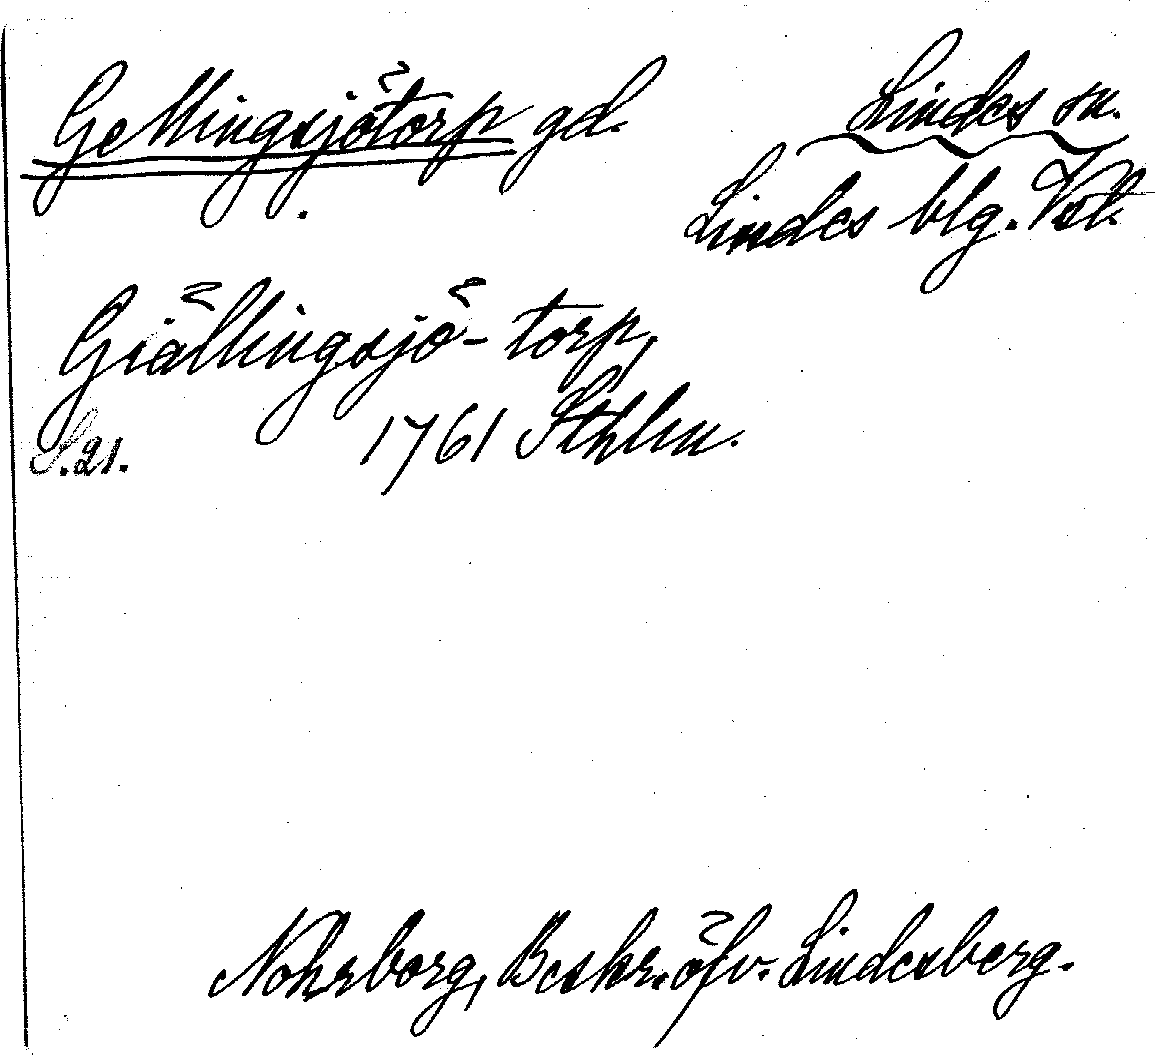 Gellingsjötorp gd.
Lindes sn.
Lindes blg. Vstl.
Giällingsjö-torp,
S. 21.
1761 Sthlm.
Nohrborg, Beskr. öfv. Lindesberg.